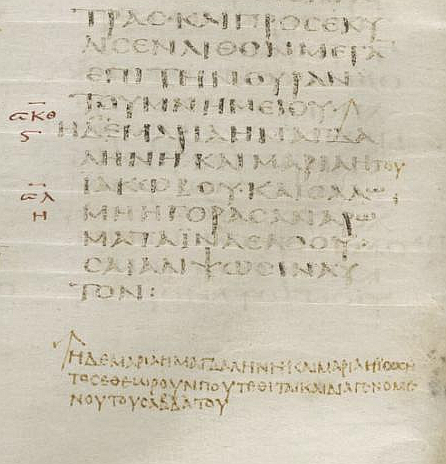 ΤΡΑϹ·ΚΑΙΠΡΟϹΕΚΥ
ΛΙϹΕΝΛΙΘΟΝΜΕΓΑ
ΕΠΙΤΗΝΘΥΡΑΝ
ΤΟΥΜΝΗΜΕΙΟΥ·
ϹΚΘ
Ϛ
ΗΔΕΜΑΡΙΑΗΜΑΓΔΑ
ΛΗΝΗΚΑΙΜΑΡΙΑΗΤΟΥ
ϹΛ
Η
ΙΑΚΩΒΟΥ·ΚΑΙϹΑΛΩ
ΜΗΗΓΟΡΑϹΑΝΑΡΩ
ΜΑΤΑΪΝΑΕΛΘΟΥ
ϹΑΙΑΛΙΨΩϹΙΝΑΥ
ΤΟΝ:
ΗΔΕΜΑΡΙΑΗΜΑΓΔΑΛΗΝΗΚΑΙΜΑΡΙΑΗΪΩϹΗ
ΤΟϹΕΘΕΩΡΟΥΝΠΟΥΤΕΘΙΤΑΙΚΑΙΔΙΑΓΕΝΟΜΕ
ΝΟΥΤΟΥϹΑΒΒΑΤΟΥ